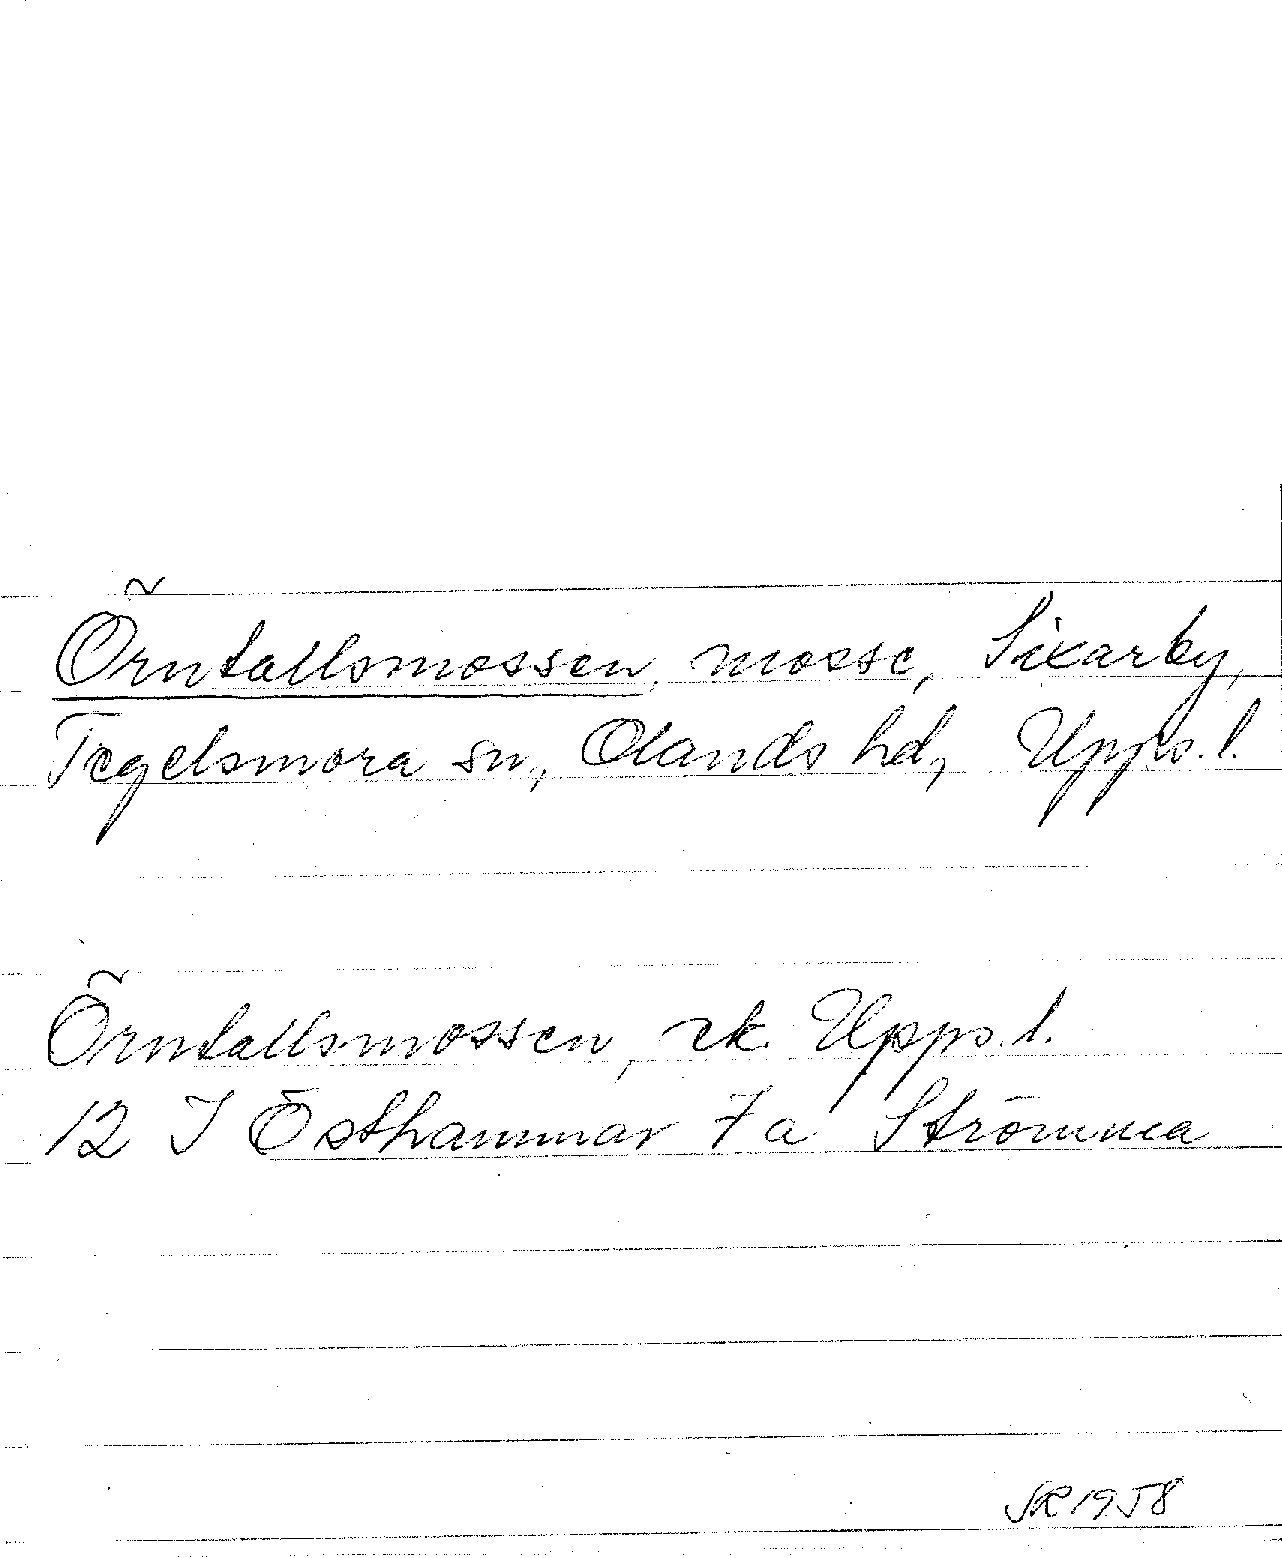 Örntallsmossen, mosse, Sixarby,
Tegelsmora sn, Olands hd, Upps. l.
Örntallsmossen, ek. Upps. l.
12 I Östhammar 7 a Strömma
SR 1958